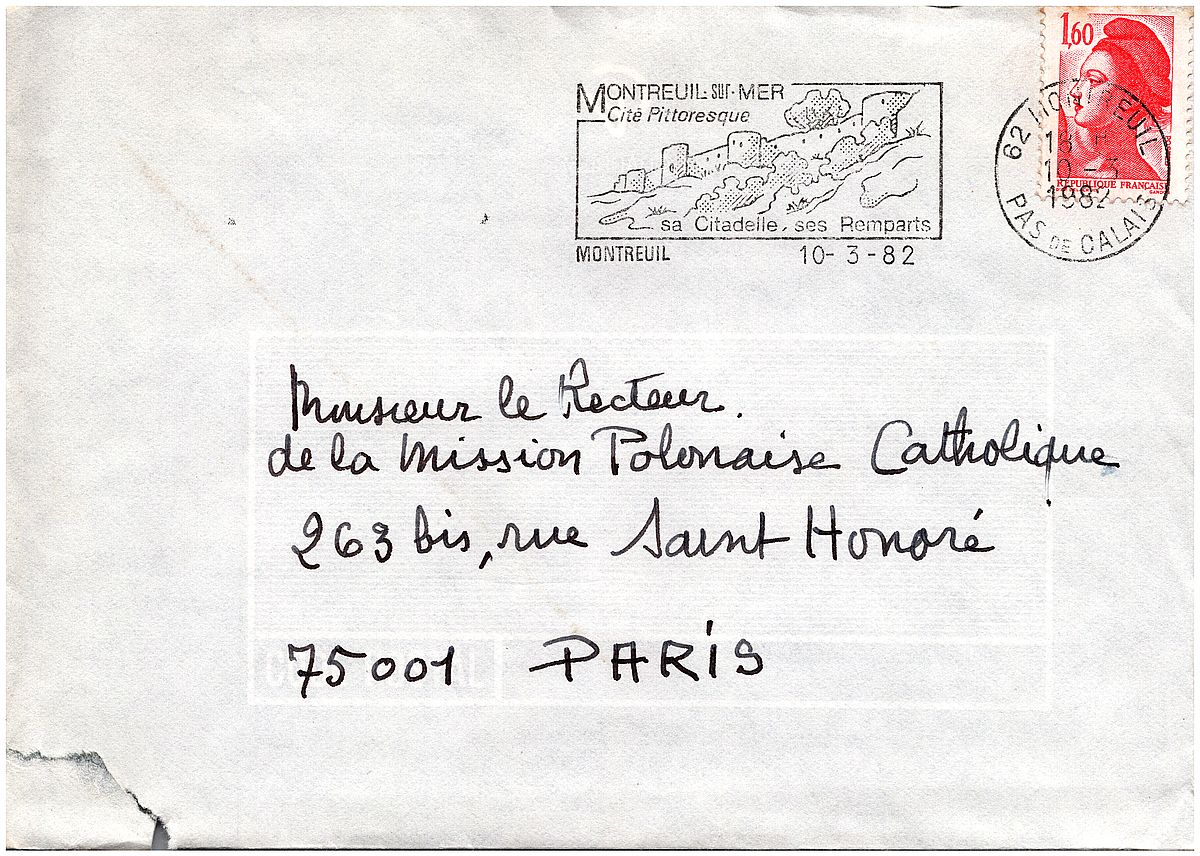 1,60
RÉPUBLIQUE FRANÇAISE
62 MONTREUIL
10-3
1982
PAS DE CALAIS
MONTREUIL-sur-MER
Cité Pittoresque
sa Citadelle, ses Remparts
MONTREUIL 10-3-82
Monsieur le Recteur.
de la Mission Polonaise Catholique
263 bis, rue Saint Honoré
75001 PARIS